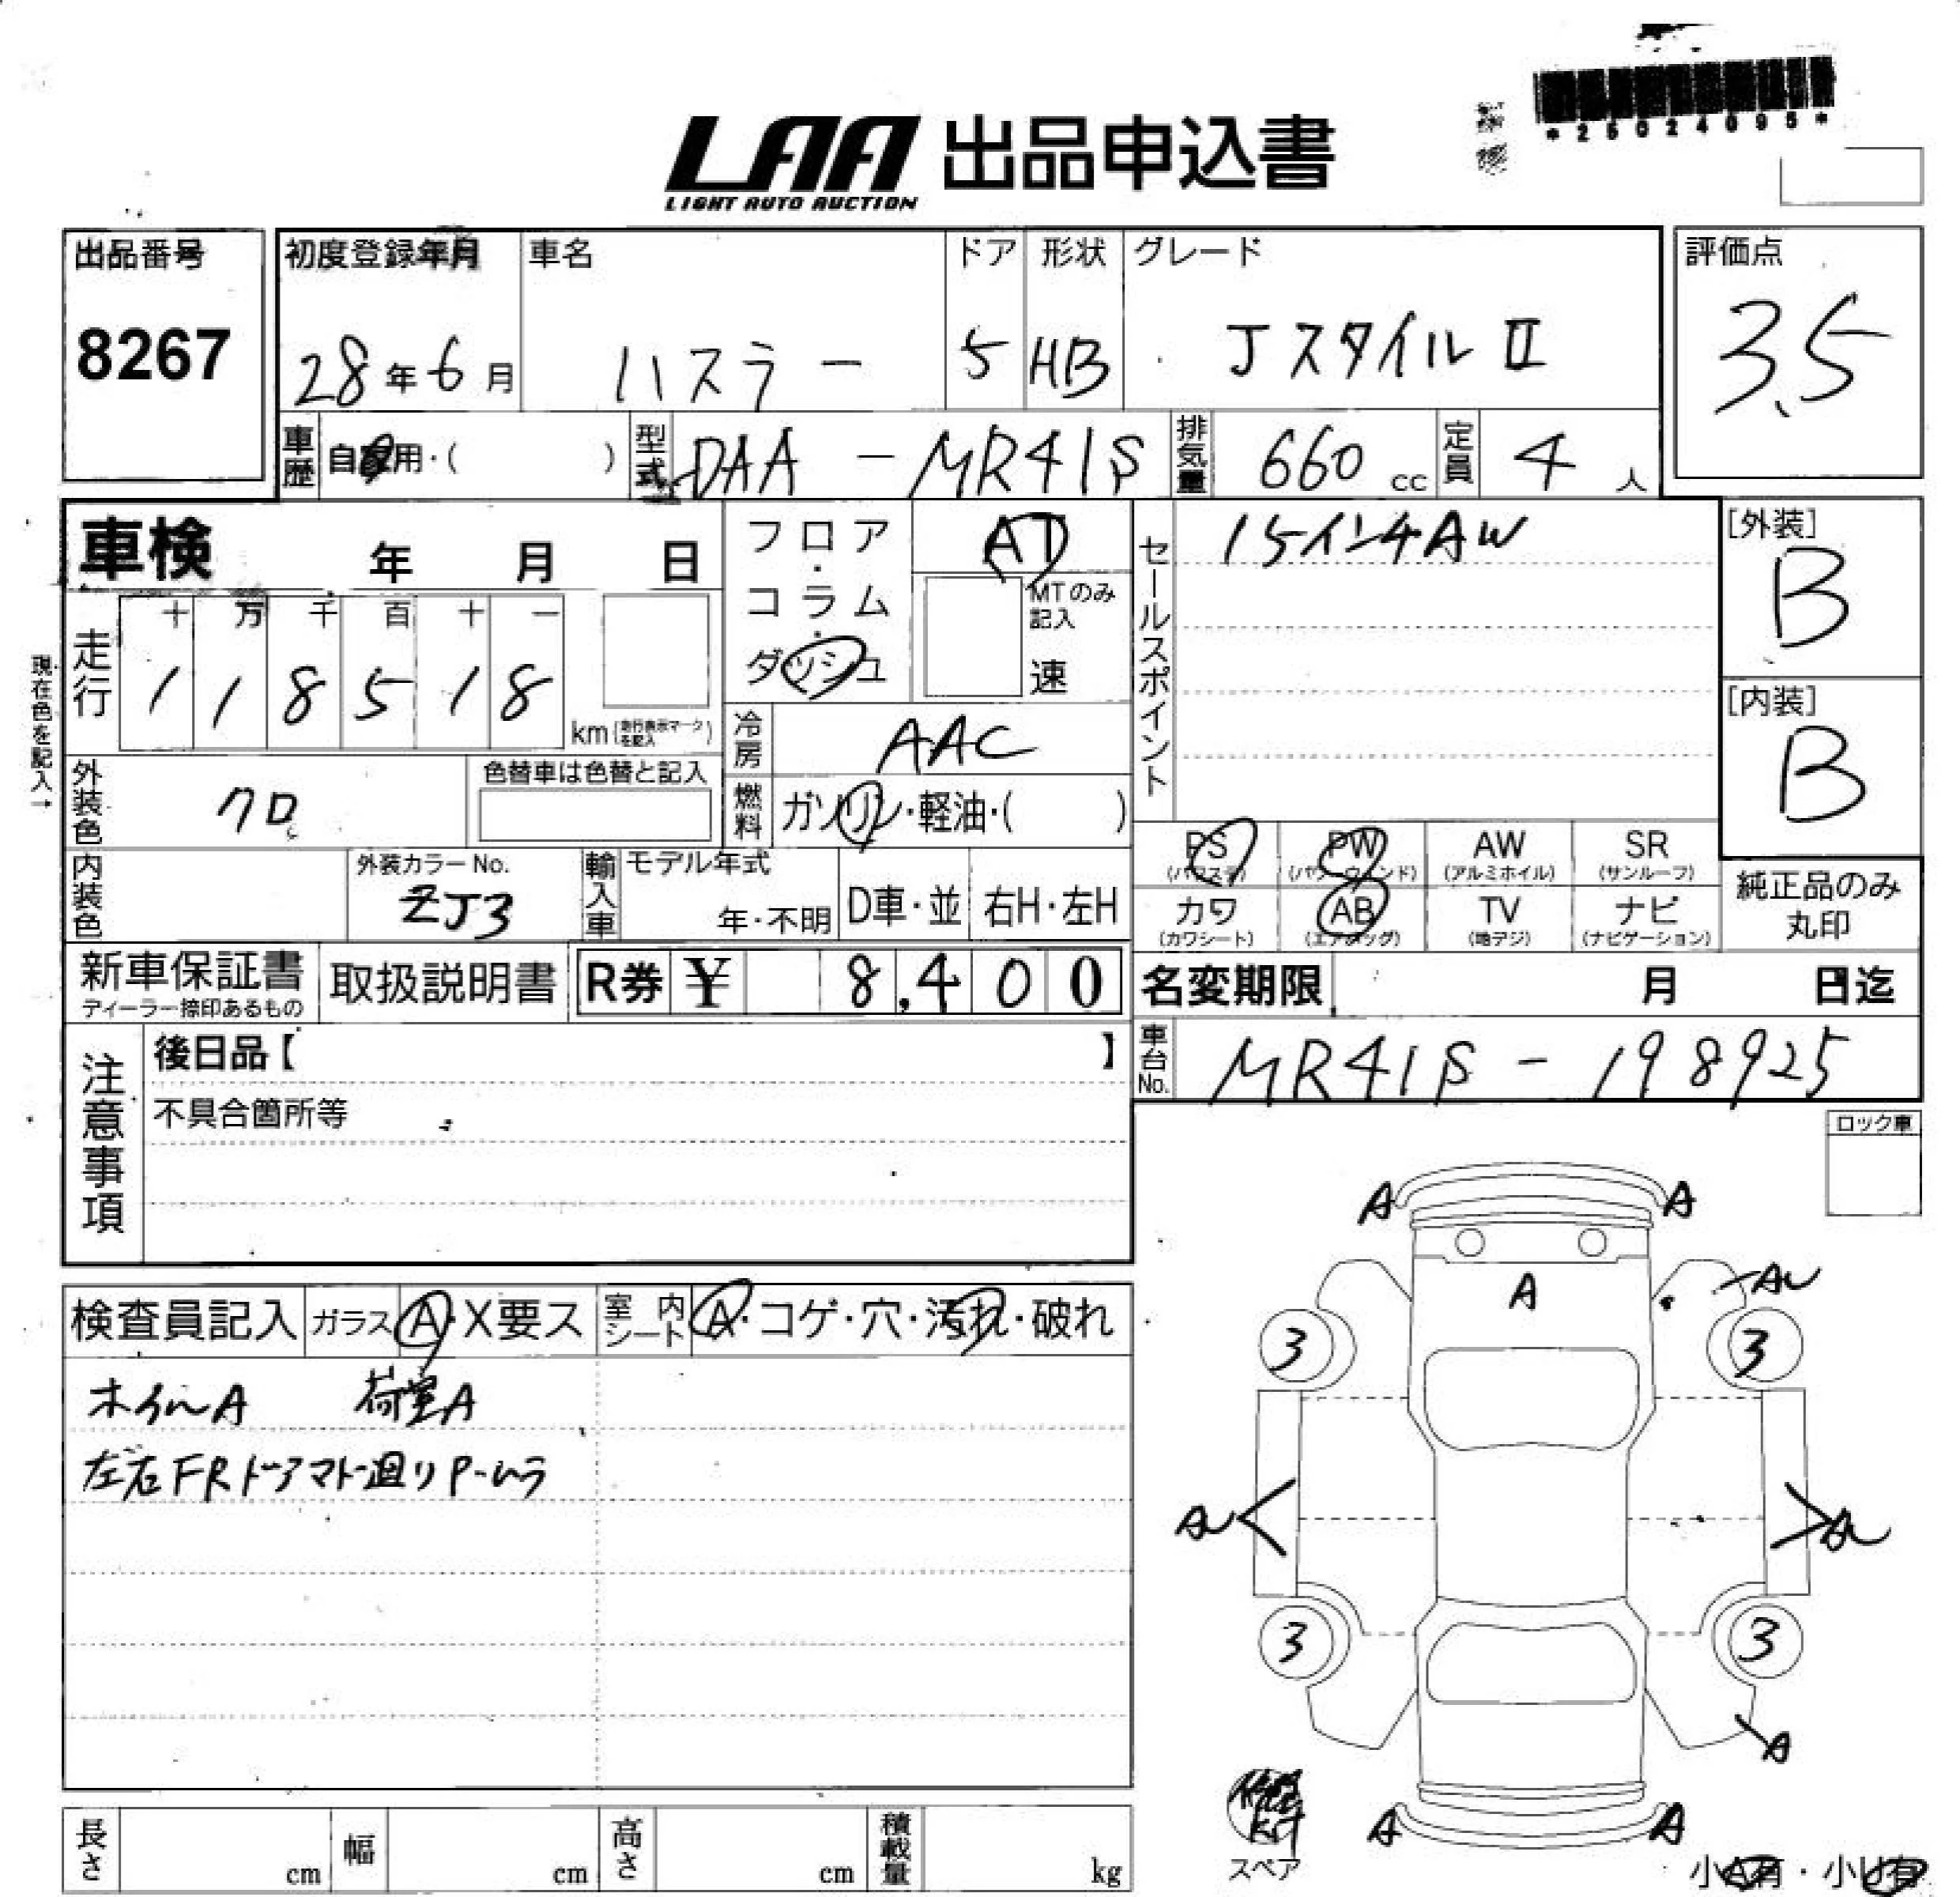 *25024095*
LAA 出品申込書
LIGHT AUTO AUCTION
出品番号
8267
初度登録年月
28年6月
車名
ハスラー
ドア
5
形状
HB
グレード
JスタイルⅡ
評価点
3.5
車歴 自家用・( )
型式 DAA-MR41S
排気量 660 cc
定員 4 人
車検 年 月 日
フロア・コラム・ダッシュ
AT
MTのみ記入
速
セールスポイント
15インチAW
[外装]
B
[内装]
B
現在色を記入→
走行
十 万 千 百 十 一
1 1 8 5 1 8
km(走行表示マークを記入)
冷房 AAC
燃料 ガソリン・軽油・( )
外装色 クロ
色替車は色替と記入
内装色
外装カラーNo.
ZJ3
輸入車
モデル年式
年・不明
D車・並
右H・左H
PS (パワステ)
PW (パワーウインド)
AW (アルミホイル)
SR (サンルーフ)
カワ (カワシート)
AB (エアバッグ)
TV (地デジ)
ナビ (ナビゲーション)
純正品のみ
丸印
新車保証書
ディーラー捺印あるもの
取扱説明書
R券 ¥ 8,400
名変期限 月 日迄
車台No. MR41S-198925
注意事項
後日品【 】
不具合箇所等
ロック車
検査員記入
ガラス A・X要ス
室内シート A・コゲ・穴・汚れ・破れ
ホイルA 荷室A
左右FRドアマド廻りP-ムラ
A A
A
AU
3 3
AU AU
3 3
A
A A
修理KIT
スペア
小A有・小U有
長さ cm
幅 cm
高さ cm
積載量 kg